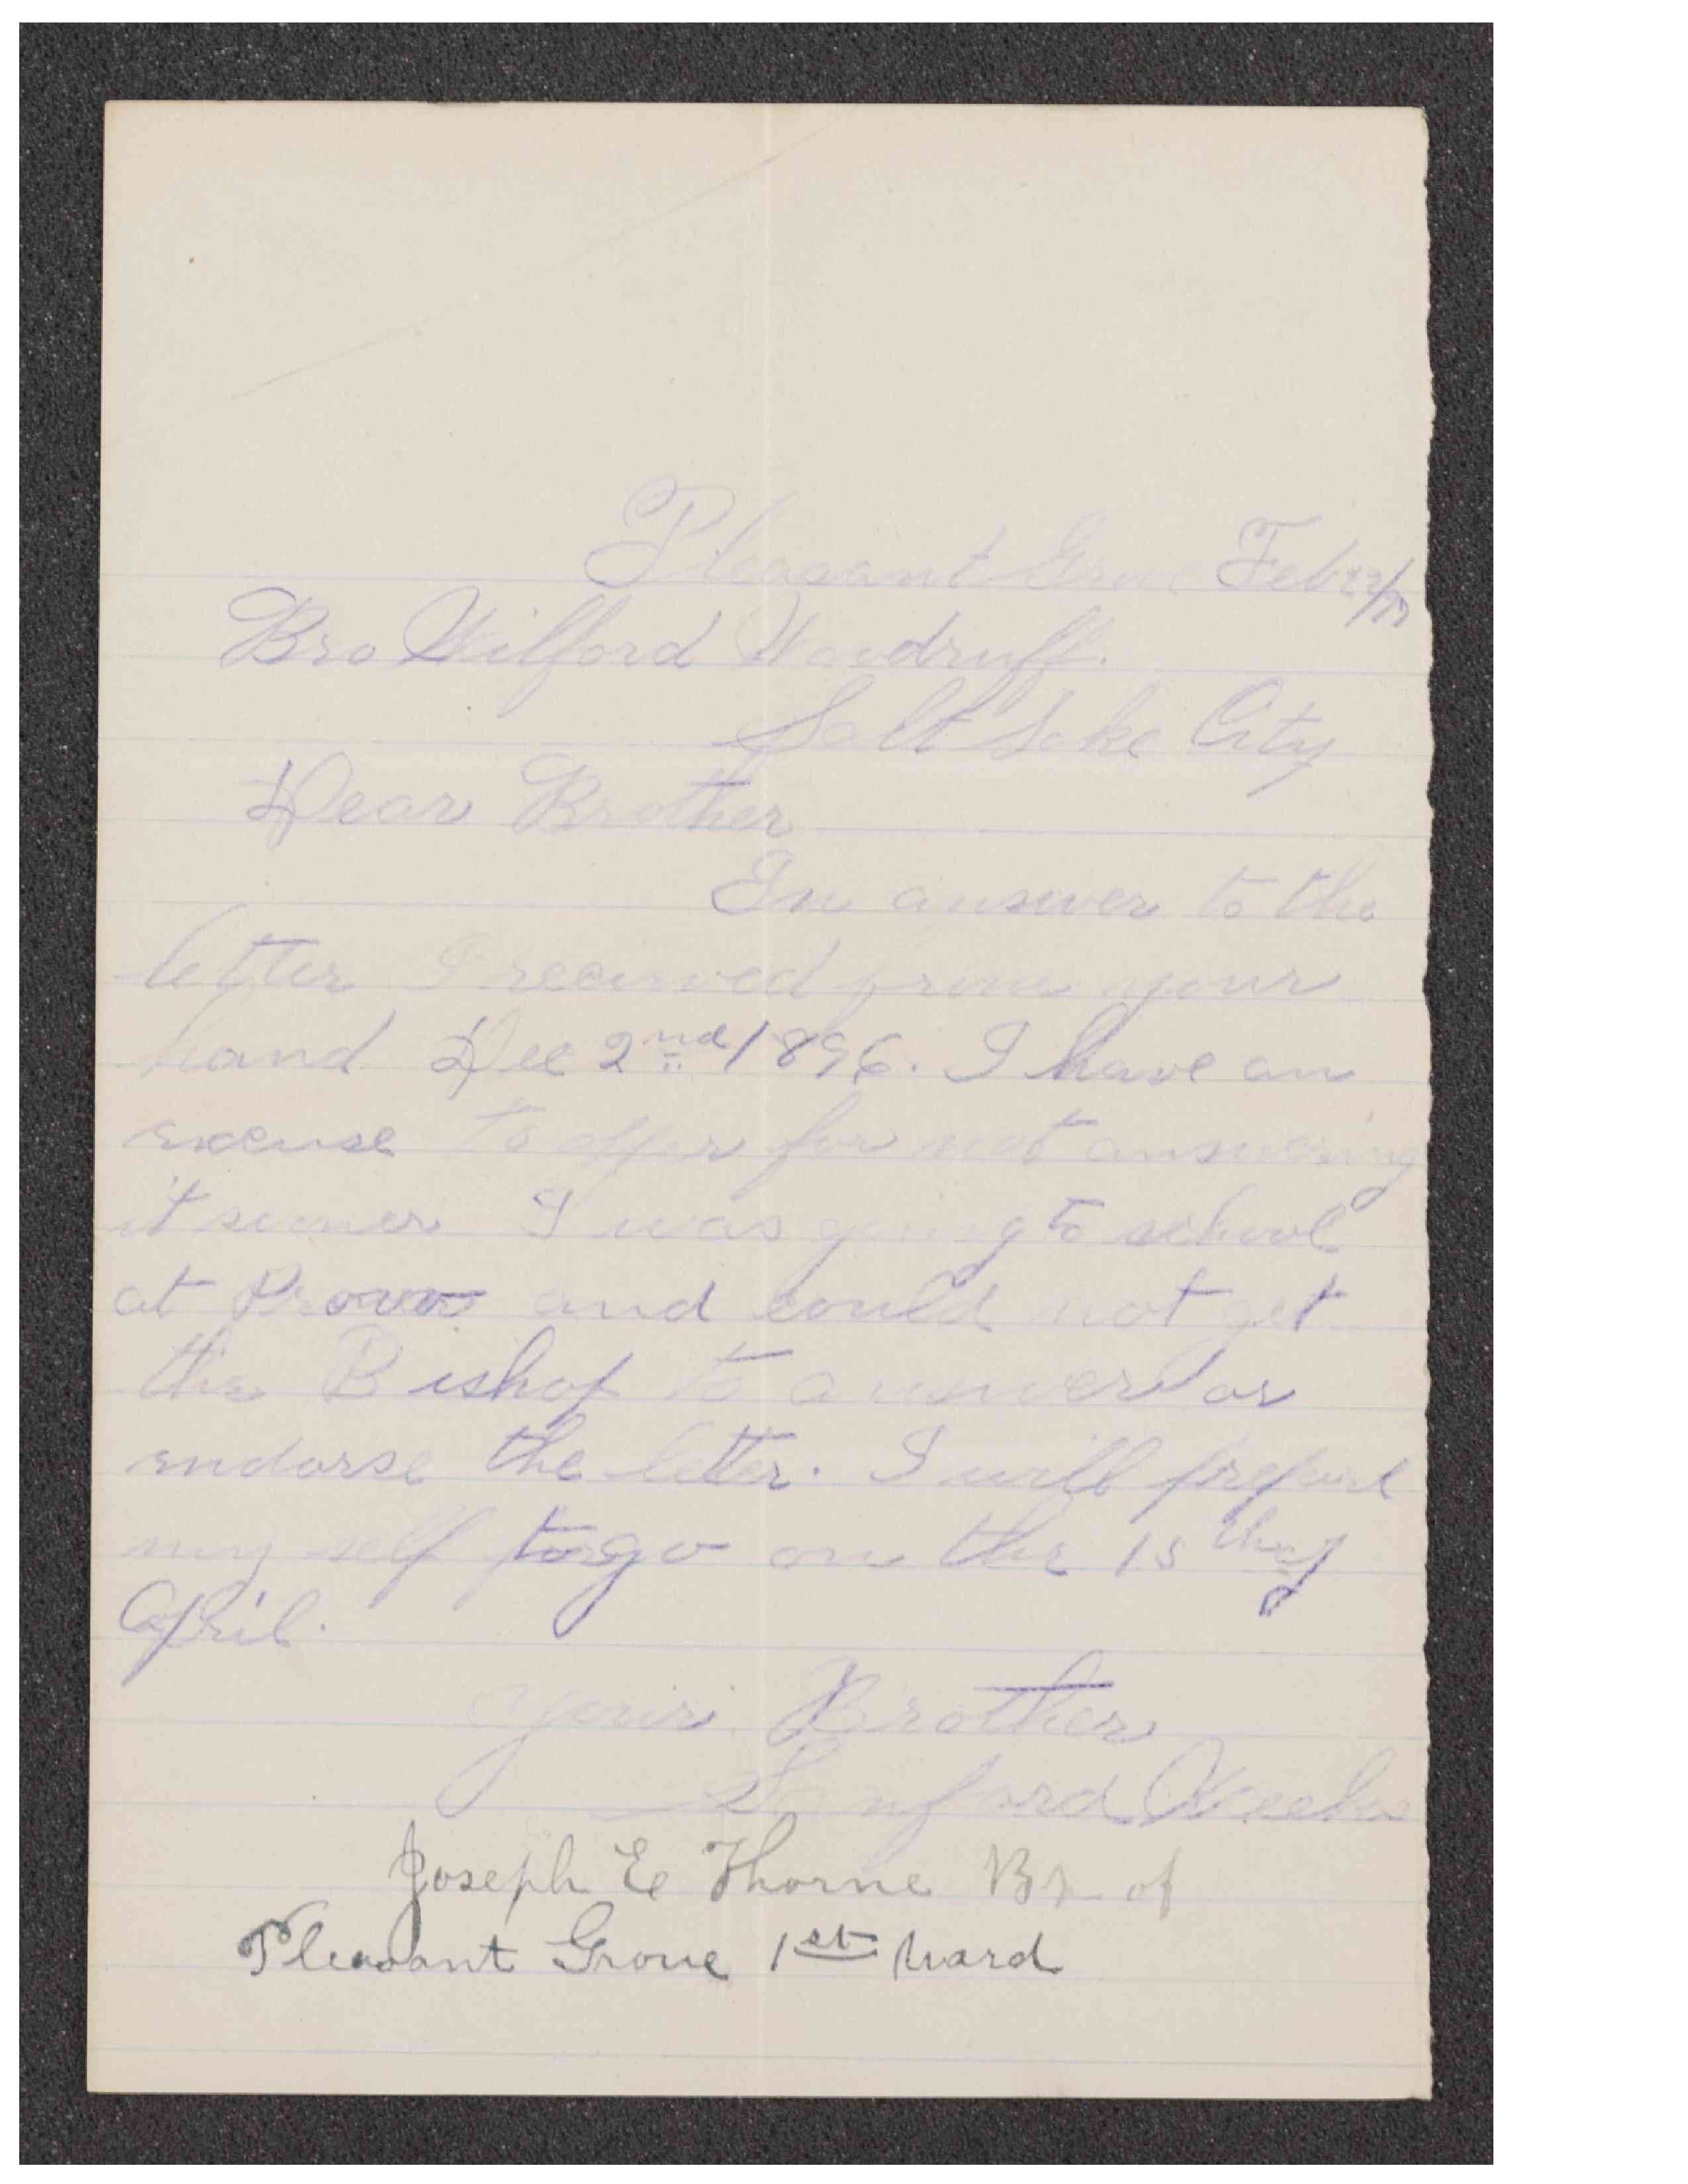 Pleasant Grove Feb 22/97
Bro Wilford Woodruff.
Salt Lake City
Dear Brother
In answer to the
letter I received from your
hand Dec 2nd 1896. I have an
excuse to offer for not answering
it sooner I was going to school
at Provo and could not get
the Bishop to answer or
endorse the letter. I will prepare
my self to go on the 15th of
April.
Your Brother
Sanford Weeks
Joseph E Thorne Bp of
Pleasant Grove 1st ward